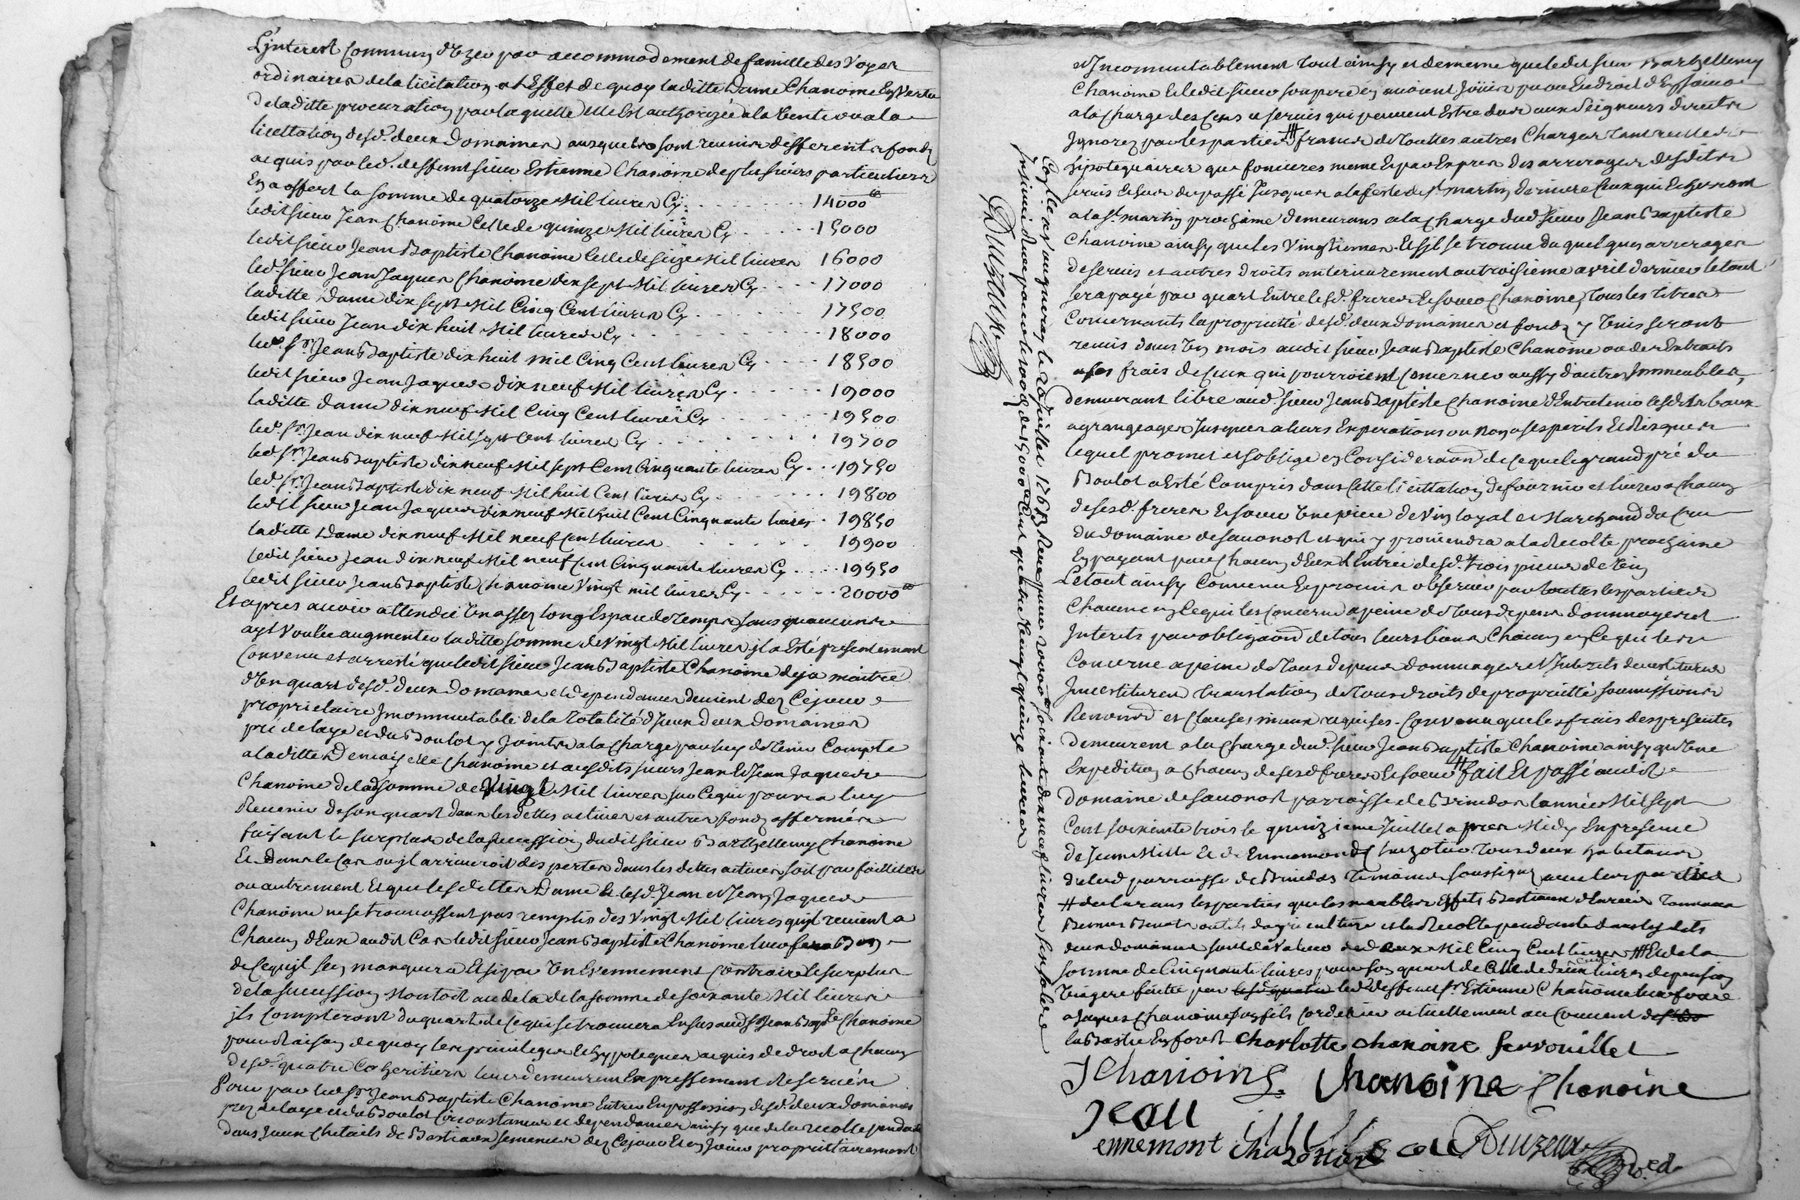 L'interest Commun d'Eux par accommodement de famille des Voyes
ordinaires de la licitation a l'Effet de quoy laditte Dame Chanoine En Vertu
de laditte procuration par laquelle elle Est authorizée a la Vente ou a la
licittation desd. deux Domaines auxquels sont reunis differents fonds
acquis par led. deffunt sieur Estienne Chanoine de plusieurs particuliers
En a offert la somme de quatorze Mil livres Cy 14000
ledit sieur Jean Chanoine Celle de quinze Mil livres Cy 15000
ledit sieur Jean Baptiste Chanoine Celle de seize Mil livres 16000
led. sieur Jean Jaques Chanoine dix sept Mil livres Cy 17000
laditte Dame dix sept Mil Cinq Cent livres Cy 17500
ledit sieur Jean dix huit Mil livres Cy 18000
led. sr. Jean Baptiste dix huit mil Cinq Cent livres Cy 18500
ledit sieur Jean Jaques dix neuf Mil livres Cy 19000
laditte dame dix neuf Mil Cinq Cent livres Cy 19500
led. sr. Jean dix neuf Mil sept Cent livres Cy 19700
led. sr. Jean Baptiste dix neuf Mil sept Cent Cinquante livres Cy 19750
led. sr. Jean Baptiste dix neuf Mil huit Cent livres Cy 19800
ledit sieur Jean Jaques dix neuf Mil huit Cent Cinquante livres 19850
laditte Dame dix neuf Mil neuf Cent livres 19900
ledit sieur Jean dix neuf Mil neuf Cent Cinquante livres Cy 19950
ledit sieur Jean Baptiste Chanoine Vingt mil livres Cy 20000
Et apres avoir attendu Un assez long Espace de temps sans qu'aucun
ayt Voulu augmenter laditte somme de Vingt Mil livres il a Esté presentement
Convenu et arresté que ledit sieur Jean Baptiste Chanoine deja maitre
d'Un quart desd. deux domaines et dependances devient dez Cejour
proprietaire Incommutable de la totalité d'Iceux deux domaines
pré de laye et du Boulot y joints a la charge par luy de tenir Compte
a laditte Demoiselle Chanoine et auxdits sieurs Jean Et Jean Jaques
Chanoine de lad. somme de Vingt Mil livres sur Ce qui pourra luy
Revenir de son quart dans les dettes actives et autres fonds affermés
faisant le surplus de la succession dudit sieur Barthellemy Chanoine
Et dans le Cas ou il arriveroit des pertes dans les dettes actives soit par faillites
ou autrement Et que lesdittes Dame Et lesd. Jean et Jean Jaques
Chanoine ne se trouvassent pas remplis des Vingt Mil livres qu'il revient a
Chacun d'Eux audit Cas ledit sieur Jean Baptiste Chanoine leur fera Bon
de Ce qu'il s'en manquera Et si par Un Evennement Contraire le surplus
de la succession Montoit au dela de la somme de soixante Mil livres
ils Compteront du quart de Ce qui se trouvera En sus aud. sr. Jean Bapte. Chanoine
pour Raison de quoy les privileges Et hypoteques acquis de droit a Chacun
desd. quatre Coheritiers leur demeurent Expressement Reservés
Pour par led. sr. Jean Baptiste Chanoine Entrer En possession desd. deux domaines
prez de laye et du Boulot Circonstances et dependances ainsy que de la recolte pendante
dans Iceux Cheteils de Bestiaux semences dez Cejour Et en Jouir proprietairement
et Incommutablement tout ainsy et de meme que ledit sieur Barthellemy
Chanoine Et ledit sieur son pere en avoient Joui par Endroit d'Eux
a la Charge des Cens et servis qui peuvent Estre dus aux seigneurs directs
Ignorez par les parties francs de touttes autres Charges tant reelles
hipotequaires que foncieres meme Et par Exprez des arrerages desdits
servis Echus du passé Jusques a la feste de st. Martin derniere Ceux qui Echerront
a la st. martin prochaine demeurans a la Charge dud. sieur Jean Baptiste
Chanoine ainsy que les Vingtiemes Et s'il se trouve du quelques arrerages
de servis et autres droits anterieurement au troisieme avril dernier le tout
sera payé par quart Entre lesd. freres Et soeur Chanoine, tous les titres
Concernants la proprietté desd. deux domaines et fonds y Unis seront
remis dans Un mois audit sieur Jean Baptiste Chanoine ou des Extraits
a ses frais de Ceux qui pourroient Concerner aussy d'autres Immeubles,
demeurant libre aud. sieur Jean Baptiste Chanoine d'Entretenir lesdits baux
a grangeages Jusques a leurs Expirations ou Non a ses perils Et Risques
lequel promet et s'oblige en Consideraon. de Ce que le grand pré du
Boulot a Esté Compris dans Cette licittation de fournir et livrer a Chacun
de sesd. freres Et soeur Une piece de Vin loyal et Marchand du Cru
du domaine de Savonost et qui y proviendra a la Recolte prochaine
En payant par Chacun d'Eux l'Entrée desd. trois pieces de Vin
Le tout ainsy Convenu Et promis observer par touttes les parties
Chacune en Ce qui les Concerne a peine de tous depens dommages et
Interets par obligaon. de tous leurs biens Chacun en Ce qui les
Concerne a peine de tous depens dommages et Interets devestitures
Investitures translation de tous droits de proprietté soumissions
Renonons. et Clauses mieux requises. Convenu que les frais des presentes
demeurent a la Charge dud. sieur Jean Baptiste Chanoine ainsy qu'Une
Expedition a Chacun de sesd. freres Et soeur # fait Et passé audit
Domaine de Savonost parroisse de Brindas l'année Mil sept
Cent soixante trois le quinzieme Juillet apres Midy En presence
de Jean Mille Et de Ennemond Chazottier tous deux habitants
dud. parroisse de Brindas temoins soussignez avec les parties
# declarans les parties que les meubles Effets Bestiaux denrées tonneaux
outils d'agriculture et la Recolte pendante dans lesdits
deux domaines sont de Valeur de deux Mil Cinq Cent livres # Et de la
somme de Cinquante livres pour son quart de Celle de deux Cent livres de pension
Viagere faitte par led. deffunt sr. Estienne Chanoine leur frere
a Jaques Chanoine son fils Cordelier actuellement au Couvent
la Bastie En forest Charlotte chanoine ferrouillet
JChanoine chanoine Chanoine
Jean mille
ennemont Chazottier Duzeux
Not. ed.
Duzeux